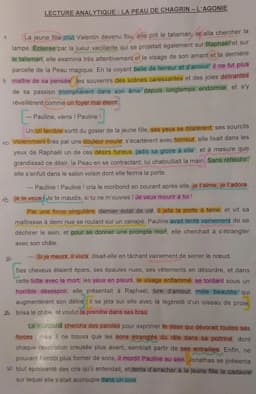 LECTURE ANALYTIQUE : LA PEAU DE CHAGRIN – L'AGONIE
La jeune fille crut Valentin devenu fou, elle prit le talisman, et alla chercher la
lampe. Éclairée par la lueur vacillante qui se projetait également sur Raphaël et sur
le talisman, elle examina très attentivement et le visage de son amant et la dernière
parcelle de la Peau magique. En la voyant belle de terreur et d'amour, il ne fut plus
maître de sa pensée : les souvenirs des scènes caressantes et des joies délirantes
de sa passion triomphèrent dans son âme depuis longtemps endormie, et s'y
réveillèrent comme un foyer mal éteint.
– Pauline, viens ! Pauline !
Un cri terrible sortit du gosier de la jeune fille, ses yeux se dilatèrent, ses sourcils
violemment tirés par une douleur inouïe, s'écartèrent avec horreur, elle lisait dans les
yeux de Raphaël un de ces désirs furieux, jadis sa gloire à elle ; et à mesure que
grandissait ce désir, la Peau en se contractant, lui chatouillait la main. Sans réfléchir,
elle s'enfuit dans le salon voisin dont elle ferma la porte.
– Pauline ! Pauline ! cria le moribond en courant après elle, je t'aime, je t'adore,
je te veux ! Je te maudis, si tu ne m'ouvres ! Je veux mourir à toi !
Par une force singulière, dernier éclat de vie, il jeta la porte à terre, et vit sa
maîtresse à demi nue se roulant sur un canapé. Pauline avait tenté vainement de se
déchirer le sein, et pour se donner une prompte mort, elle cherchait à s'étrangler
avec son châle.
– Si je meurs, il vivra, disait-elle en tâchant vainement de serrer le nœud.
Ses cheveux étaient épars, ses épaules nues, ses vêtements en désordre, et dans
cette lutte avec la mort, les yeux en pleurs, le visage enflammé, se tordant sous un
horrible désespoir, elle présentait à Raphaël, ivre d'amour, mille beautés qui
augmentèrent son délire ; il se jeta sur elle avec la légèreté d'un oiseau de proie,
brisa le châle, et voulut la prendre dans ses bras.
Le moribond chercha des paroles pour exprimer le désir qui dévorait toutes ses
forces ; mais il ne trouva que les sons étranglés du râle dans sa poitrine, dont
chaque respiration creusée plus avant, semblait partir de ses entrailles. Enfin, ne
pouvant bientôt plus former de sons, il mordit Pauline au sein. Jonathas se présenta
tout épouvanté des cris qu'il entendait, et tenta d'arracher à la jeune fille le cadavre
sur lequel elle s'était accroupie dans un coin.